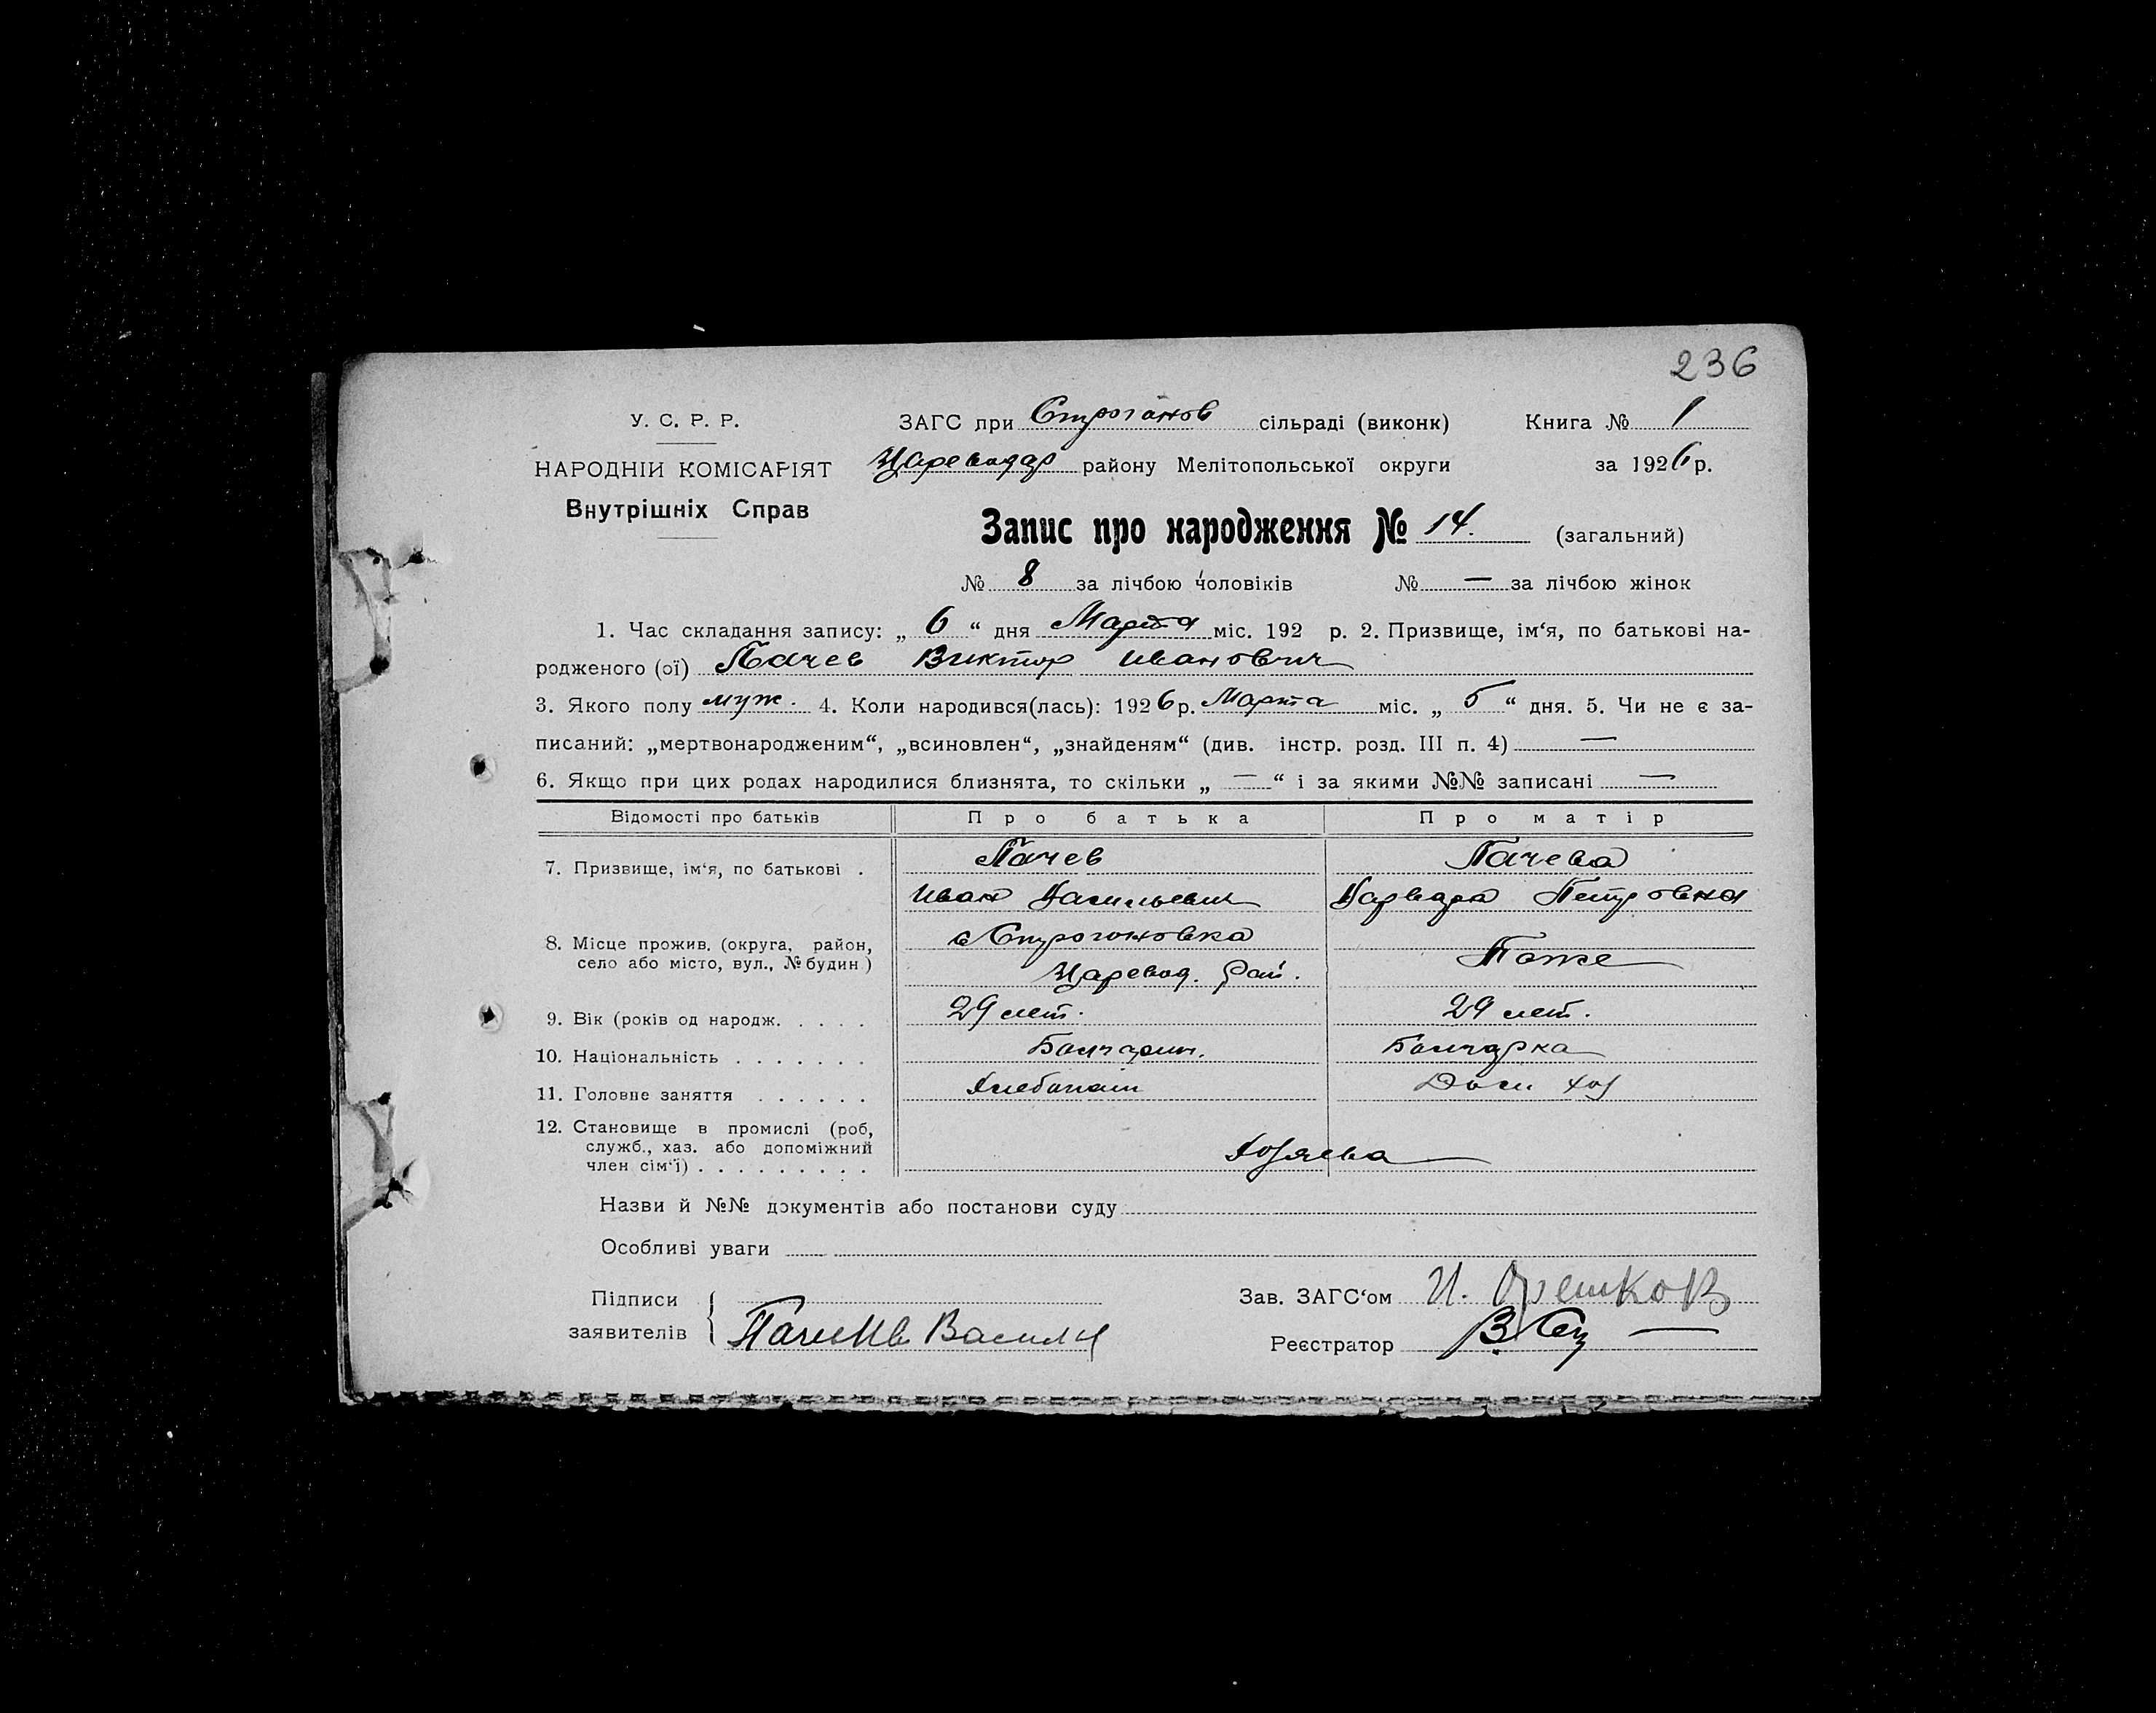 236
У. С. Р. Р.
ЗАГС при Строганов сільраді (виконк) Книга № 1
НАРОДНІЙ КОМІСАРІЯТ
Цареводар району Мелітопольської округи за 1926 р.
Внутрішніх Справ
Запис про народження № 14. (загальний)
№ 8 за лічбою чоловіків № — за лічбою жінок
1. Час складання запису: „ 6 “ дня Марта міс. 192 р. 2. Призвище, ім‘я, по батькові на-
родженого (ої) Пачев Виктор Иванович
3. Якого полу муж. 4. Коли народився(лась): 1926 р. Марта міс. „ 5 “ дня. 5. Чи не є за-
писаний: „мертвонародженим“, „всиновлен“, „знайденям“ (див. інстр. розд. III п. 4) —
6. Якщо при цих родах народилися близнята, то скільки „ — “ і за якими №№ записані —
Відомості про батьків Про батька Про матір
7. Призвище, ім‘я, по батькові . Пачев Пачева
Иван Васильевич Варвара Петровна
8. Місце прожив. (округа, район, с Строгоновка
село або місто, вул., № будин) Царевод. Рай. Тоже
9. Вік (років од народж. . . . . 29 лет. 29 лет.
10. Національність . . . . . . . Болгарин. Болгарка
11. Головне заняття . . . . . . Хлебопаш Дом хоз
12. Становище в промислі (роб,
служб., хаз. або допоміжний
член сім‘ї) . . . . . . . . . Хозяева
Назви й №№ документів або постанови суду
Особливі уваги
Підписи
заявителів Василий
Зав. ЗАГС‘ом И. Орешков
Реєстратор